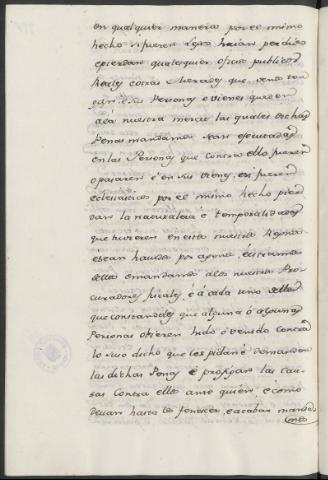 en qualquier manera por el mismo
hecho si fueren legos haian perdido
e pierdan qualesquier oficios publicos
Reales e otras Mercedes que tengan
e sus Personas e vienes queden
a la nuestra merced las quales dichas
Penas mandamos sean executadas
en las Personas que contra ello fueren
o pasaren é en sus vienes, e si fueren
eclesiasticos por el mismo hecho pier
dan la naturaleza é temporalidades
que tuvieren en estos nuestros Reynos
é sean havidos por agenos é estraños
dellos e mandamos a los nuestros Pro
curadores fiscales é á cada uno dellos
que constandoles que alguna ó algunas
Personas obieren hido ó venido contra
lo suso dicho que les pidan é demanden
las dichas Penas é prosigan las cau
sas contra ellos ante quien e como
devan hasta las fenecer, e acabar manda
mos